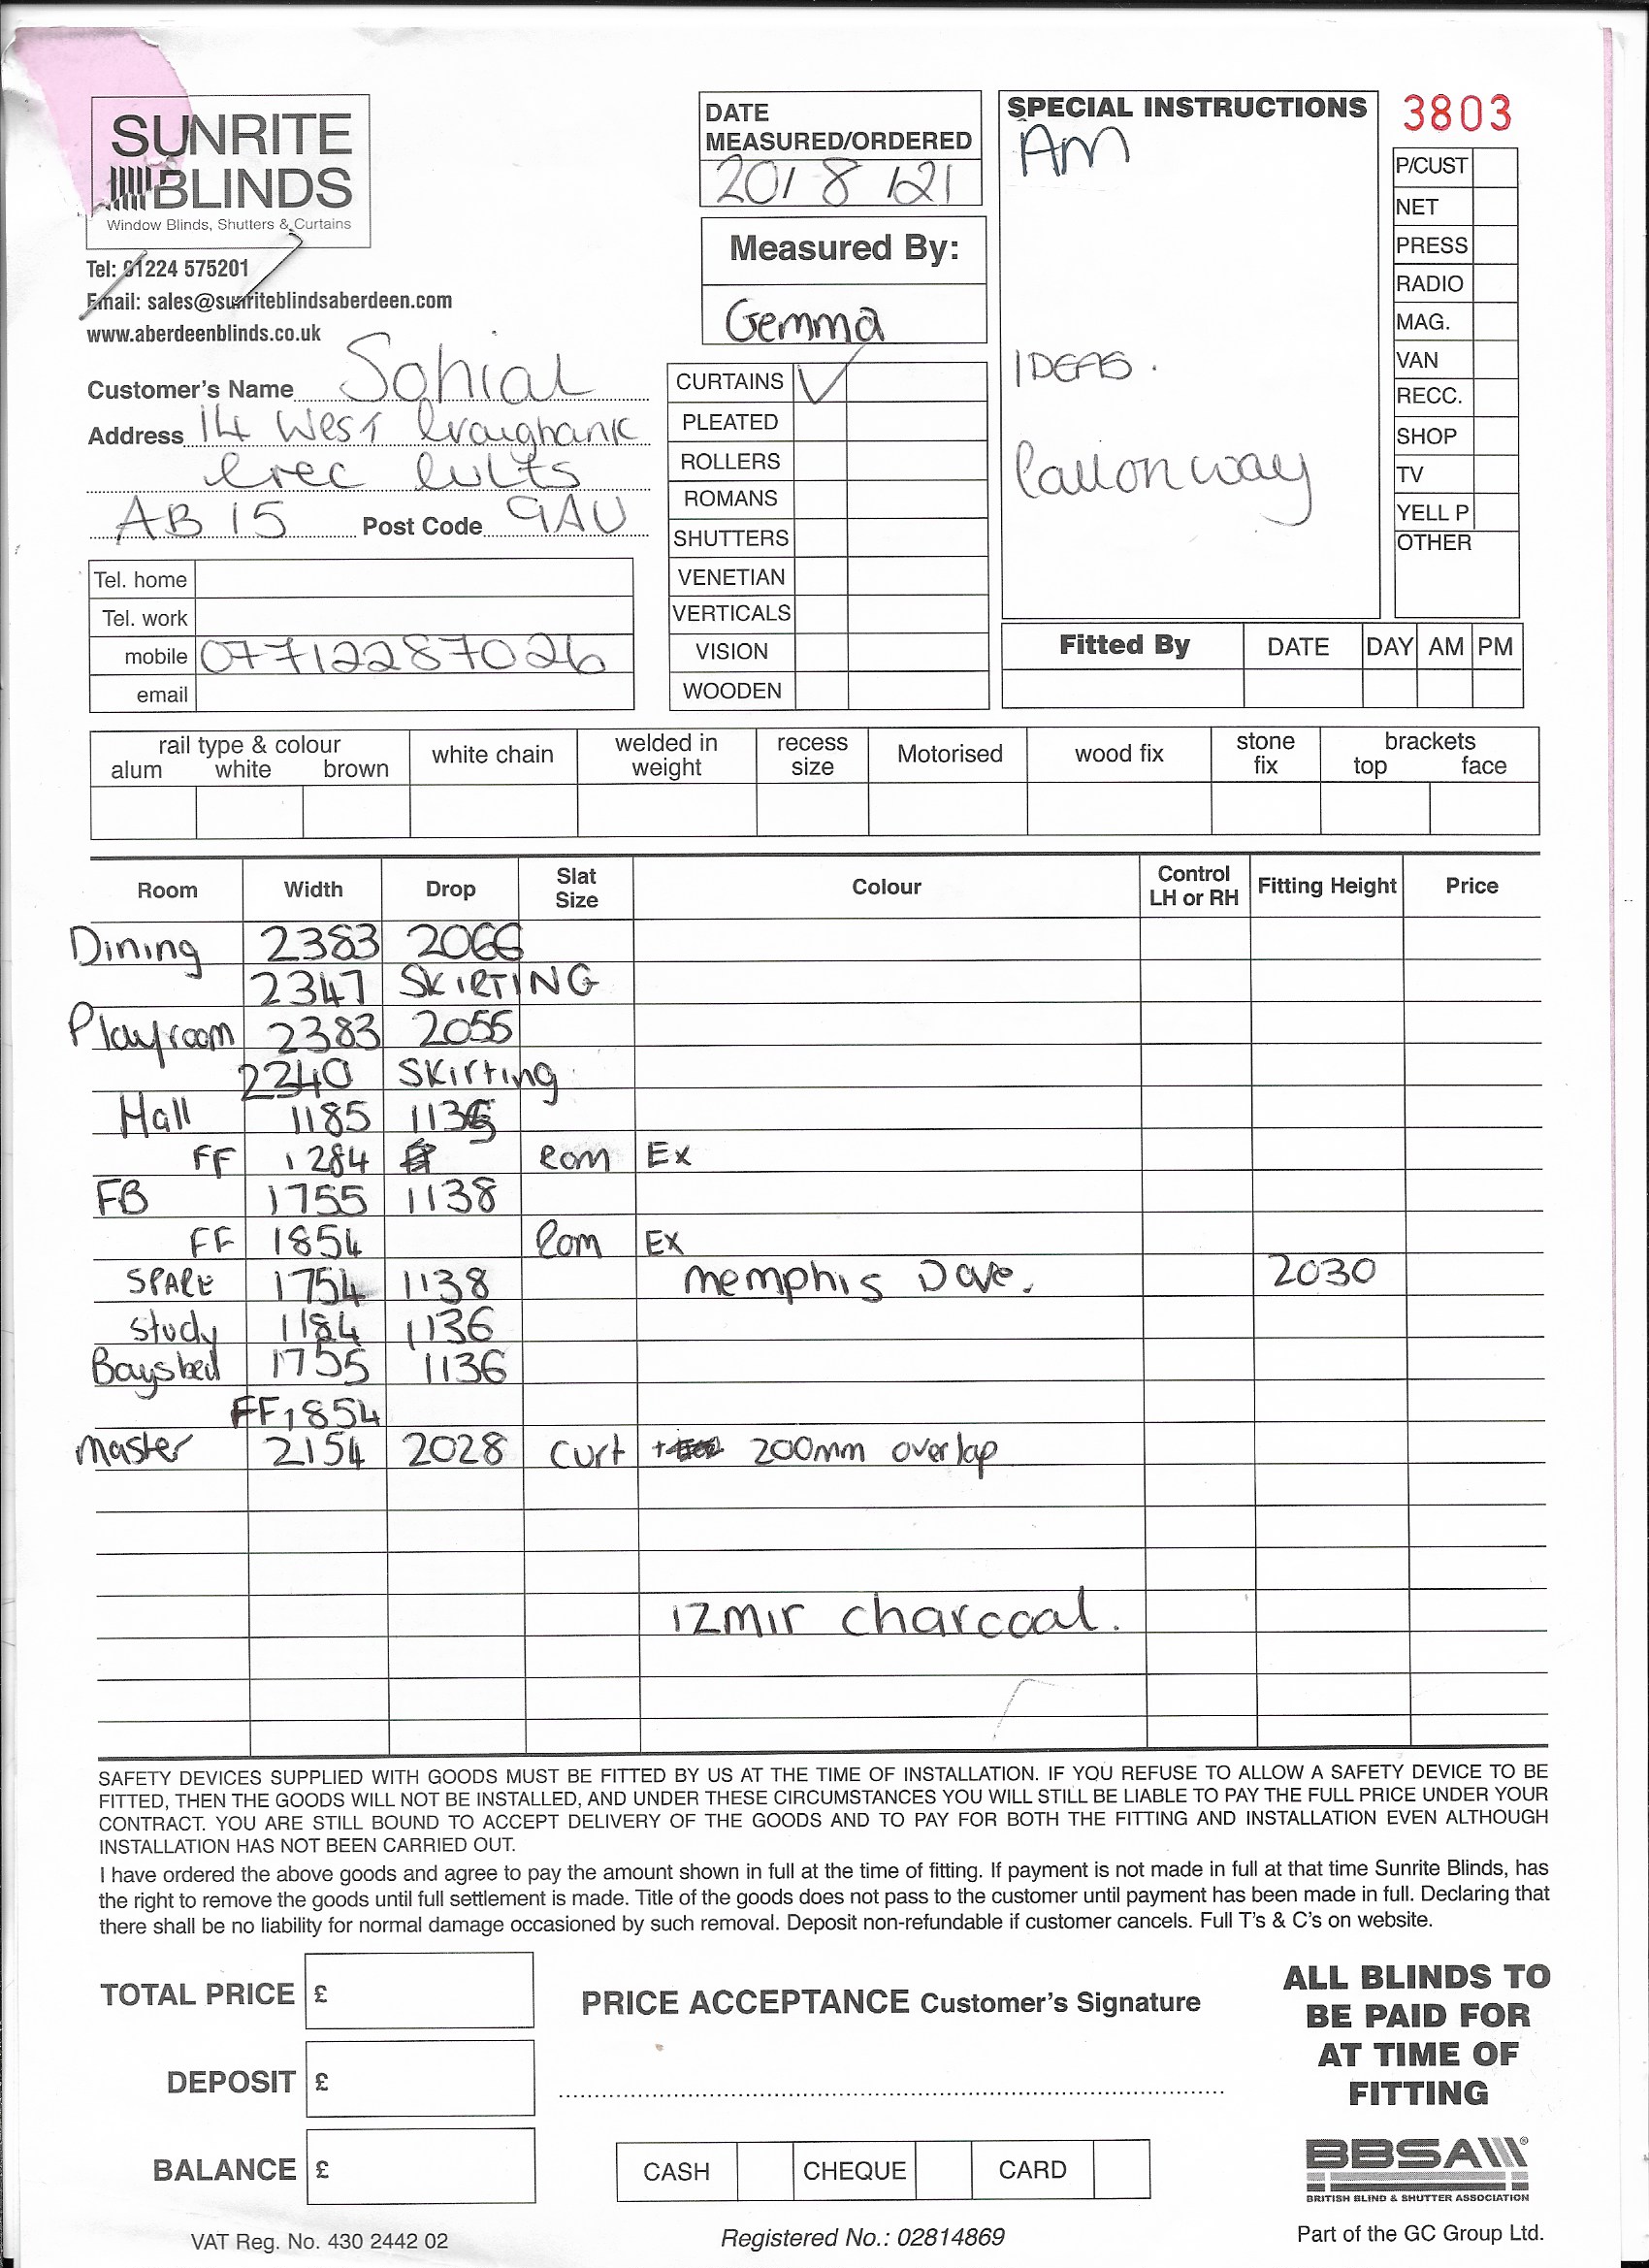 SUNRITE
BLINDS
Window Blinds, Shutters & Curtains
Tel: 01224 575201
Email: sales@sunriteblindsaberdeen.com
www.aberdeenblinds.co.uk
DATE
MEASURED/ORDERED
20/8/21
Measured By:
Gemma
SPECIAL INSTRUCTIONS
AM
IDEAS.
3803
P/CUST
NET
PRESS
RADIO
MAG.
VAN
RECC.
SHOP
TV
YELL P
OTHER
Customer's Name Sohial
Address 14 West Craigbank
Cres Cults
AB15 Post Code 9AU
Tel. home
Tel. work
mobile 07712287026
email
CURTAINS ✓
PLEATED
ROLLERS
ROMANS
SHUTTERS
VENETIAN
VERTICALS
VISION
WOODEN
way
Fitted By DATE DAY AM PM
rail type & colour
alum white brown
white chain
welded in
weight
recess
size
Motorised
wood fix
stone
fix
brackets
top face
Room Width Drop Slat Size Colour Control LH or RH Fitting Height Price
Dining 2383 2066
2347 SKIRTING
Playroom 2383 2055
2240 Skirting
Hall 1185
FF 1284 Rom Ex
FB 1755 1138
FF 1854 Rom Ex
SPARE 1754 1138 memphis Dove. 2030
Study 1184 1136
Boys bed 1755 1136
FF 1854
Master 2154 2028 Curt + 200mm overlap
izmir charcoal.
SAFETY DEVICES SUPPLIED WITH GOODS MUST BE FITTED BY US AT THE TIME OF INSTALLATION. IF YOU REFUSE TO ALLOW A SAFETY DEVICE TO BE
FITTED, THEN THE GOODS WILL NOT BE INSTALLED, AND UNDER THESE CIRCUMSTANCES YOU WILL STILL BE LIABLE TO PAY THE FULL PRICE UNDER YOUR
CONTRACT. YOU ARE STILL BOUND TO ACCEPT DELIVERY OF THE GOODS AND TO PAY FOR BOTH THE FITTING AND INSTALLATION EVEN ALTHOUGH
INSTALLATION HAS NOT BEEN CARRIED OUT.
I have ordered the above goods and agree to pay the amount shown in full at the time of fitting. If payment is not made in full at that time Sunrite Blinds, has
the right to remove the goods until full settlement is made. Title of the goods does not pass to the customer until payment has been made in full. Declaring that
there shall be no liability for normal damage occasioned by such removal. Deposit non-refundable if customer cancels. Full T's & C's on website.
TOTAL PRICE £
DEPOSIT £
BALANCE £
PRICE ACCEPTANCE Customer's Signature
CASH CHEQUE CARD
ALL BLINDS TO
BE PAID FOR
AT TIME OF
FITTING
BBSA®
BRITISH BLIND & SHUTTER ASSOCIATION
VAT Reg. No. 430 2442 02
Registered No.: 02814869
Part of the GC Group Ltd.